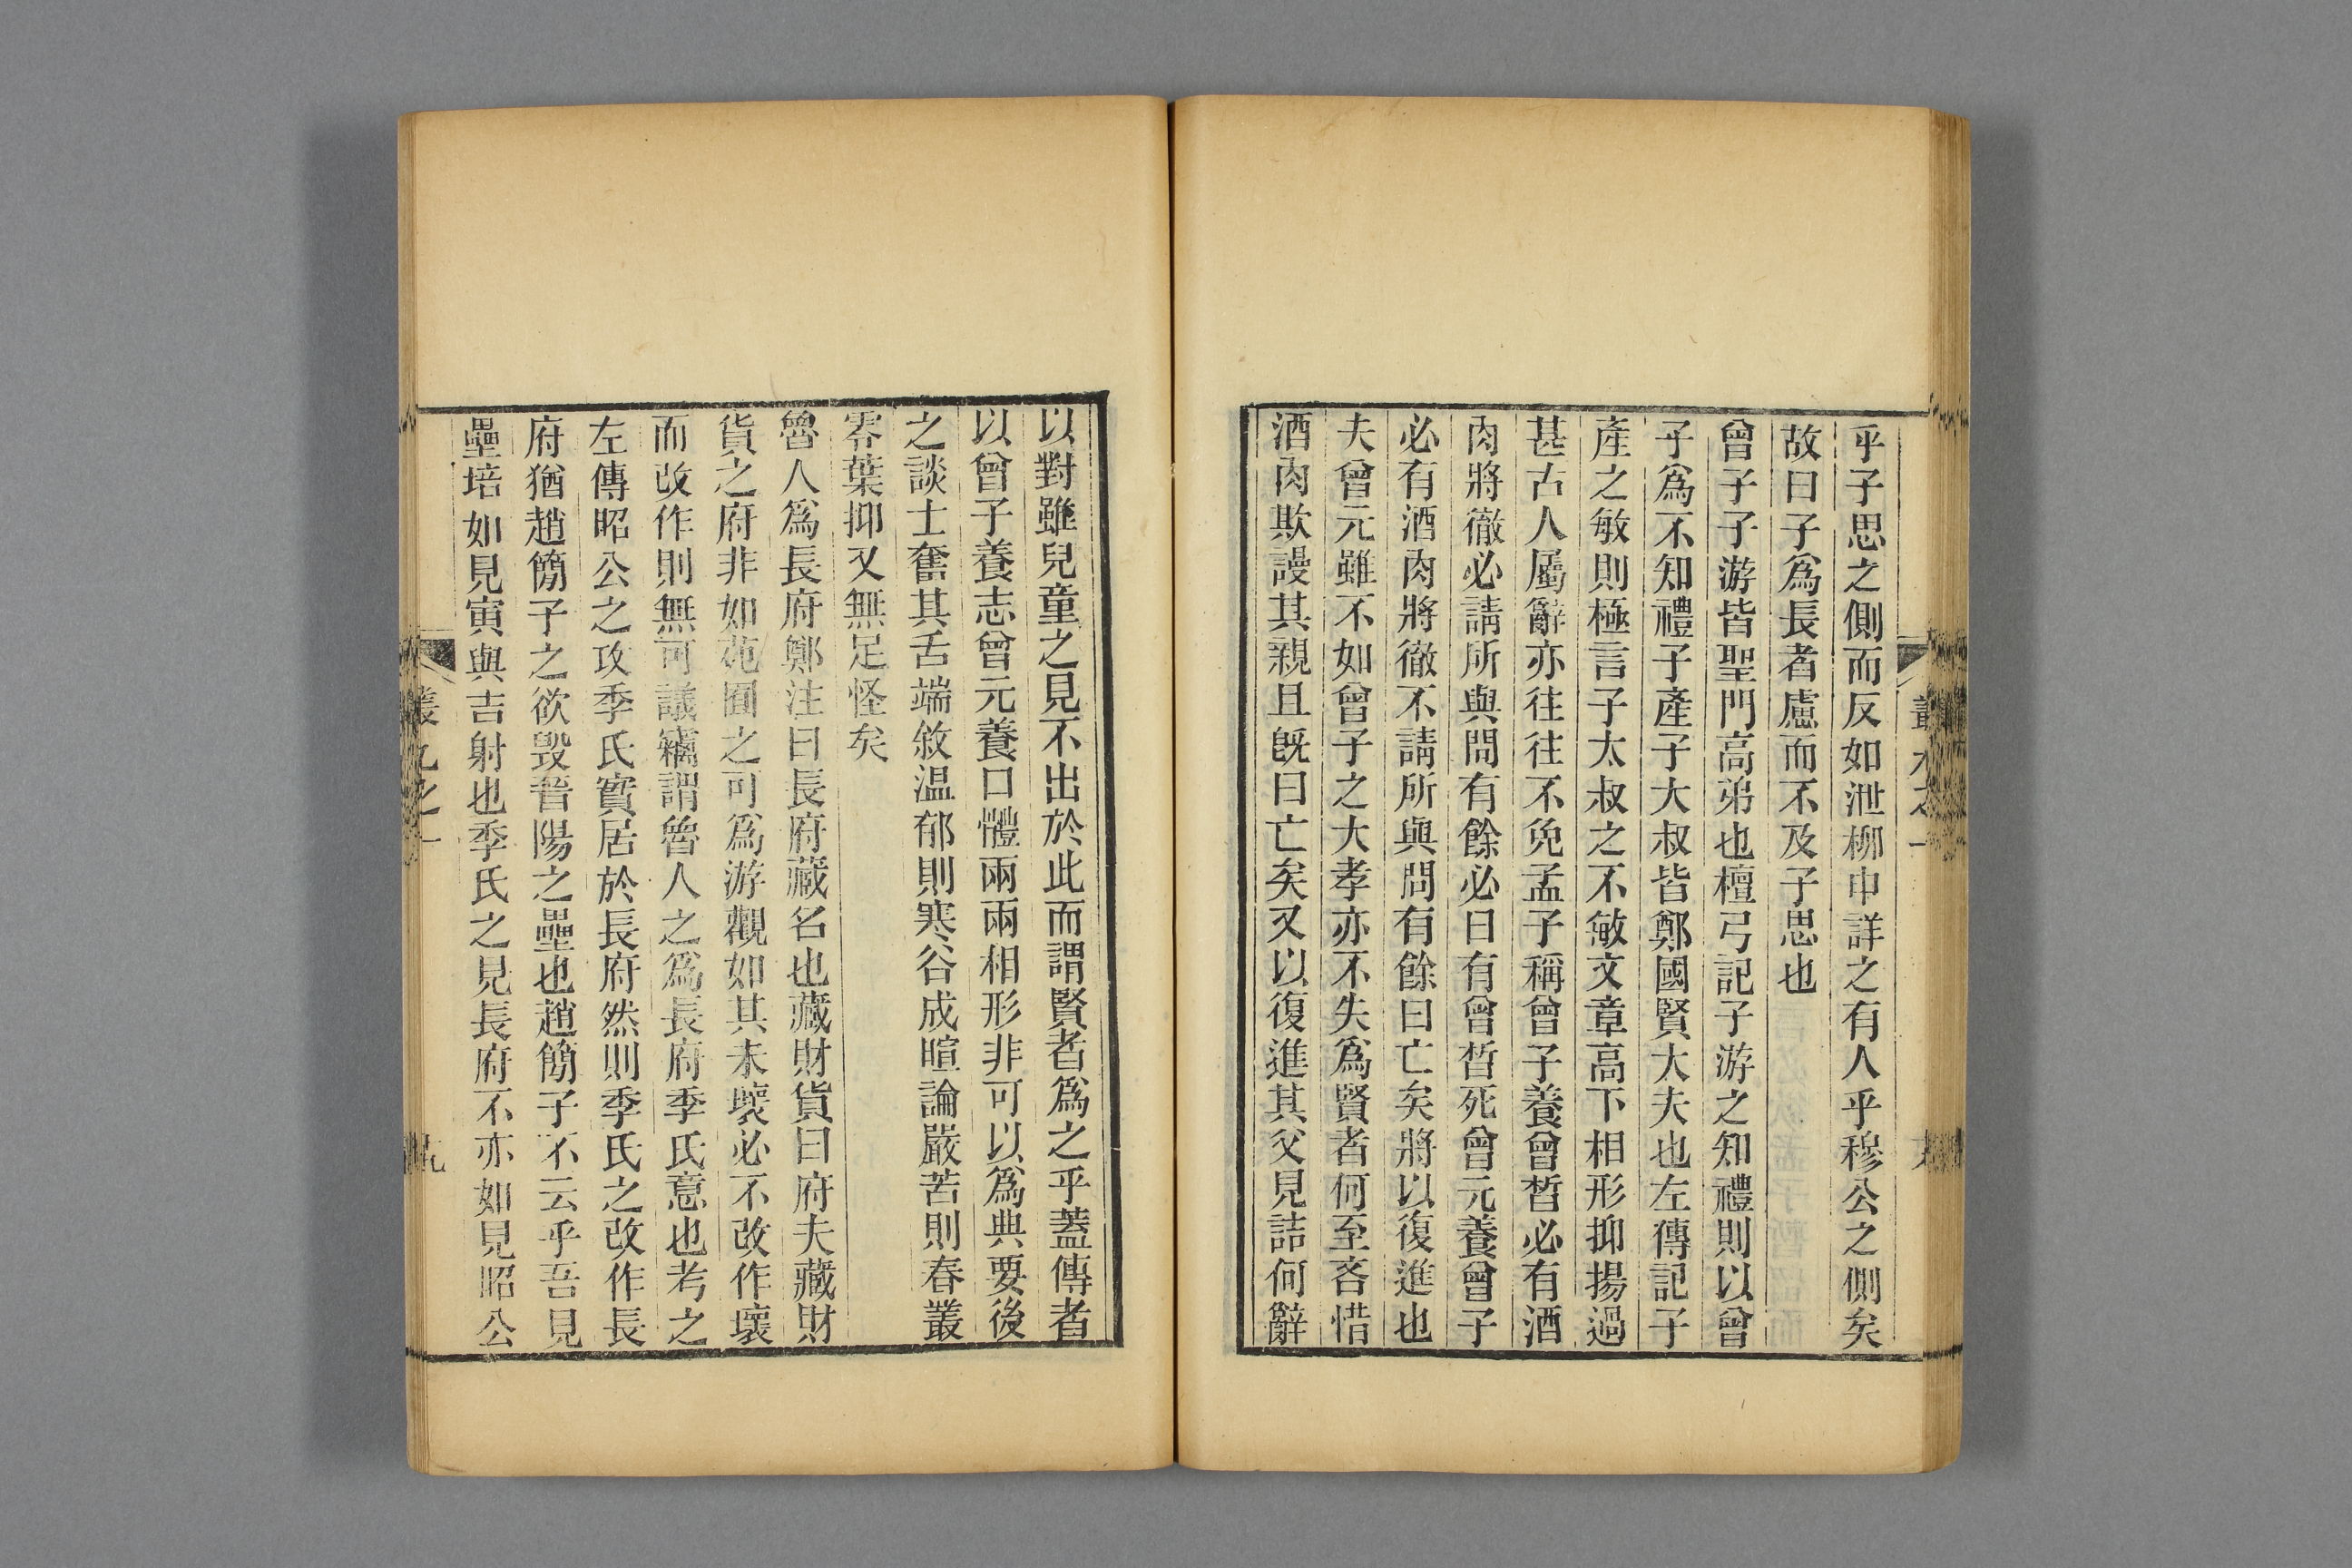 乎子思之側而反如泄柳申詳之有人乎穆公之側矣
故曰子爲長者慮而不及子思也
曾子子游皆聖門高弟也檀弓記子游之知禮則以曾
子爲不知禮子產子大叔皆鄭國賢大夫也左傳記子
產之敏則極言子太叔之不敏文章高下相形抑揚過
甚古人屬辭亦往往不免孟子稱曾子養曾晳必有酒
肉將徹必請所與問有餘必曰有曾晳死曾元養曾子
必有酒肉將徹不請所與問有餘曰亡矣將以復進也
夫曾元雖不如曾子之大孝亦不失爲賢者何至吝惜
酒肉欺謾其親且旣曰亡矣又以復進其父見詰何辭
以對雖兒童之見不出於此而謂賢者爲之乎蓋傳者
以曾子養志曾元養口體兩兩相形非可以爲典要後
之談士奮其舌端敘溫郁則寒谷成暄論嚴苦則春叢
零葉抑又無足怪矣
魯人爲長府鄭注曰長府藏名也藏財貨曰府夫藏財
貨之府非如苑囿之可爲游觀如其未壞必不改作壞
而改作則無可議竊謂魯人之爲長府季氏意也考之
左傳昭公之攻季氏實居於長府然則季氏之改作長
府猶趙簡子之欲毁晉陽之壘也趙簡子不云乎吾見
壘培如見寅與吉射也季氏之見長府不亦如見昭公
叢九之一